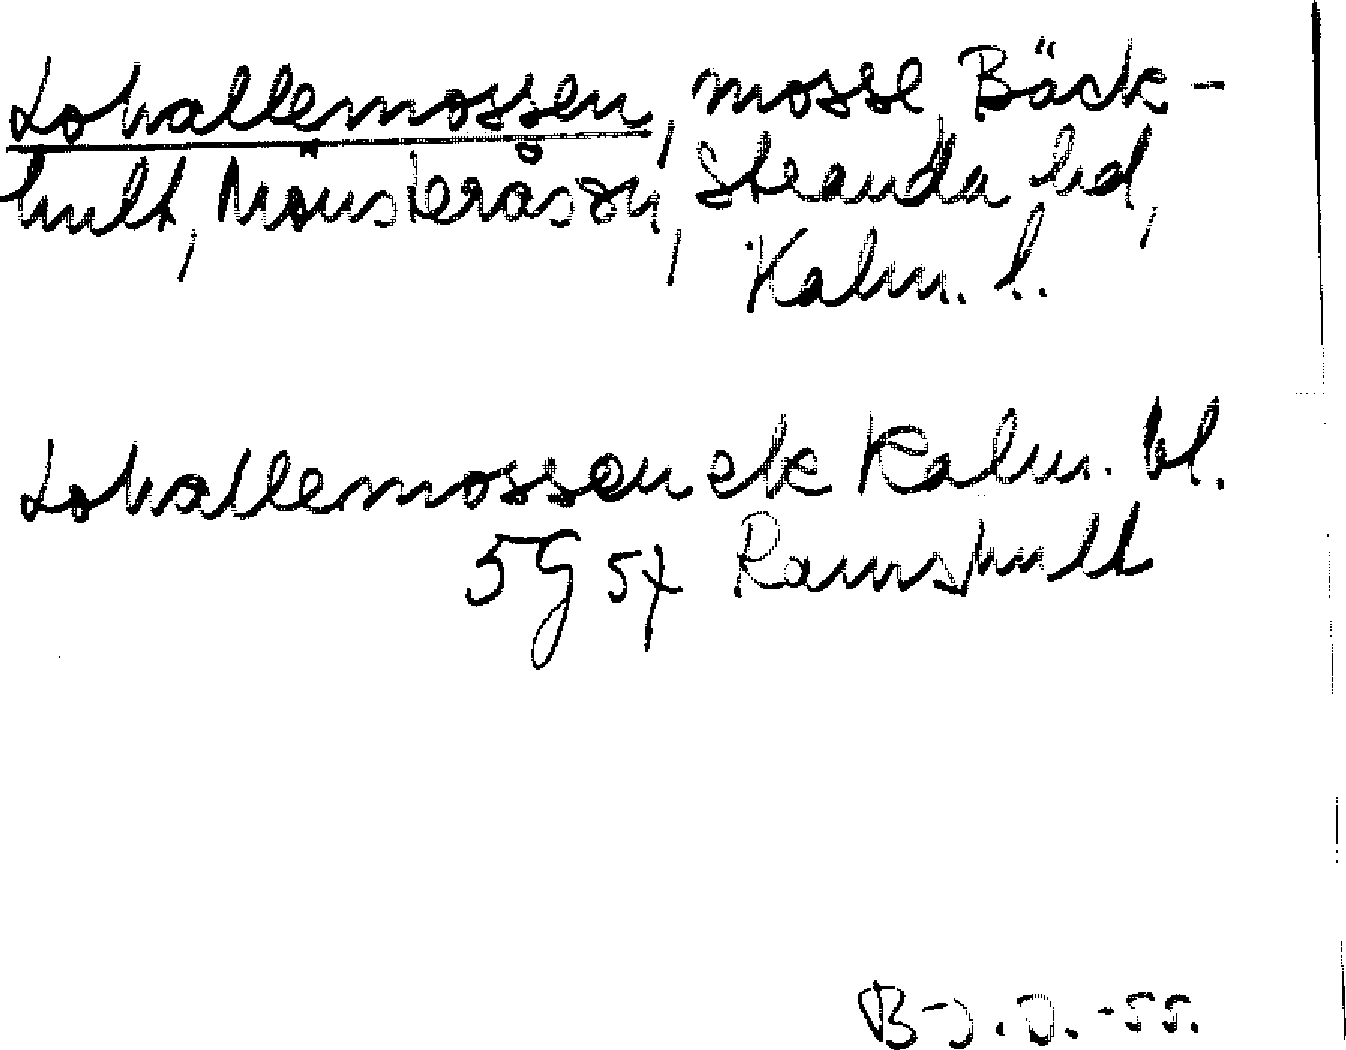 Lohallemossen, mosse Bäck-
hult, Mönsterås sn, Stranda hd,
Kalm. l.
Lohallemossen ek Kalm. bl.
5G 5f Ramshult
B-J. J. -55.